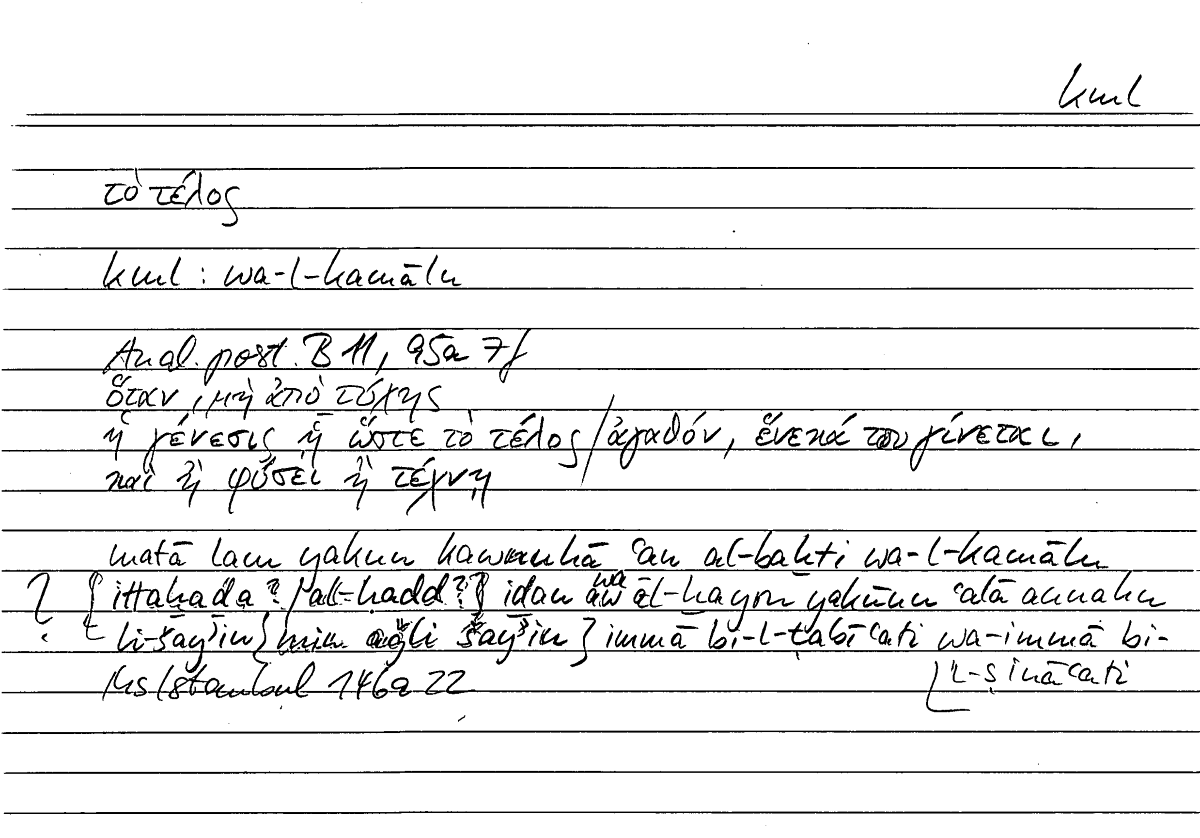 kml
τὸ τέλος
kml : wa-l-kamālu
Anal. post. B 11, 95a 7f
ὅταν, μὴ ἀπὸ τύχης
ἡ γένεσις ᾖ ὥστε τὸ τέλος / ἀγαθόν, ἕνεκά του γίνεται,
καὶ ἢ φύσει ἢ τέχνῃ
matā lam yakun kawnuhā ʿan al-baḫti wa-l-kamālu
? { ittaḥada? / al-ḥadd? } iḏan wa al-ḫayru yakūnu ʿalā annahu
li-šayʾin { min aǧli šayʾin } immā bi-l-ṭabīʿati wa-immā bi-
l-ṣināʿati
Ms Istambul 146a 22